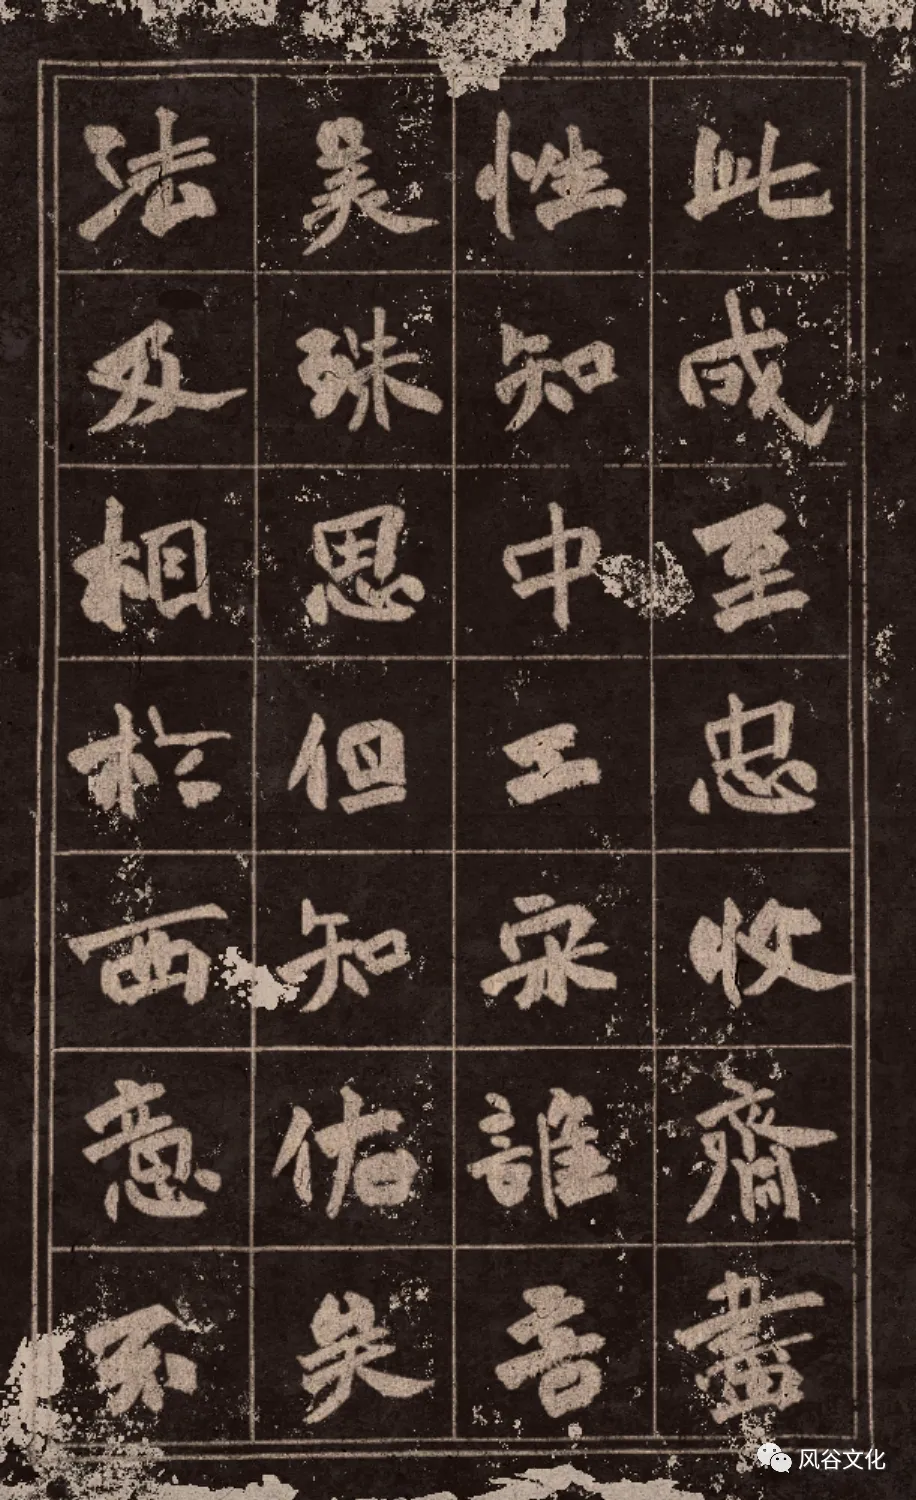 此成至忠收齊盡
性知中工家誰音
吴殊思但知佑矣
法及相於西意不
风谷文化